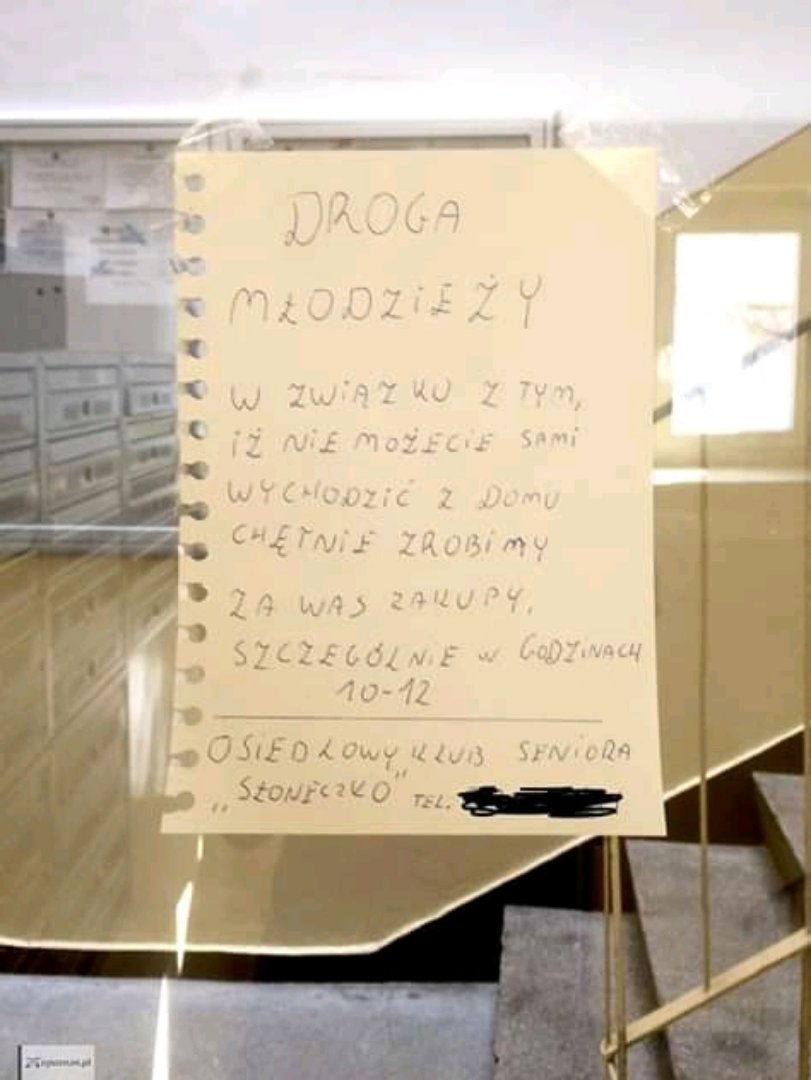 DROGA
MŁODZIEŻY
W ZWIĄZKU Z TYM,
IŻ NIE MOŻECIE SAMI
WYCHODZIĆ Z DOMU
CHĘTNIE ZROBIMY
ZA WAS ZAKUPY,
SZCZEGÓLNIE W GODZINACH
10-12
OSIEDLOWY KLUB SENIORA
„SŁONECZKO” TEL.